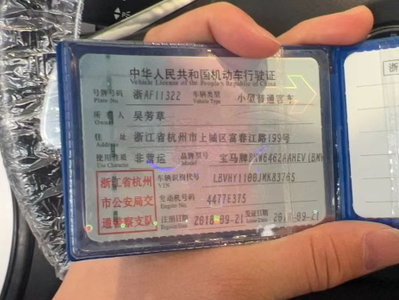 中华人民共和国机动车行驶证
Vehicle License of the People's Republic of China
号牌号码 浙AF11322 车辆类型 小型普通客车
Plate No. Vehicle Type
所有人 吴芳草
Owner
住址 浙江省杭州市上城区富春江路199号
Address
使用性质 非营运 品牌型号 宝马牌
Use Character Model
浙江省杭州
市公安局交
通警察支队
车辆识别代号 LBVHY1100JMA83765
VIN
发动机号码 44776375
Engine No.
注册日期 2018-09-21 发证日期 2018-09-21
Register Date Issue Date
浙